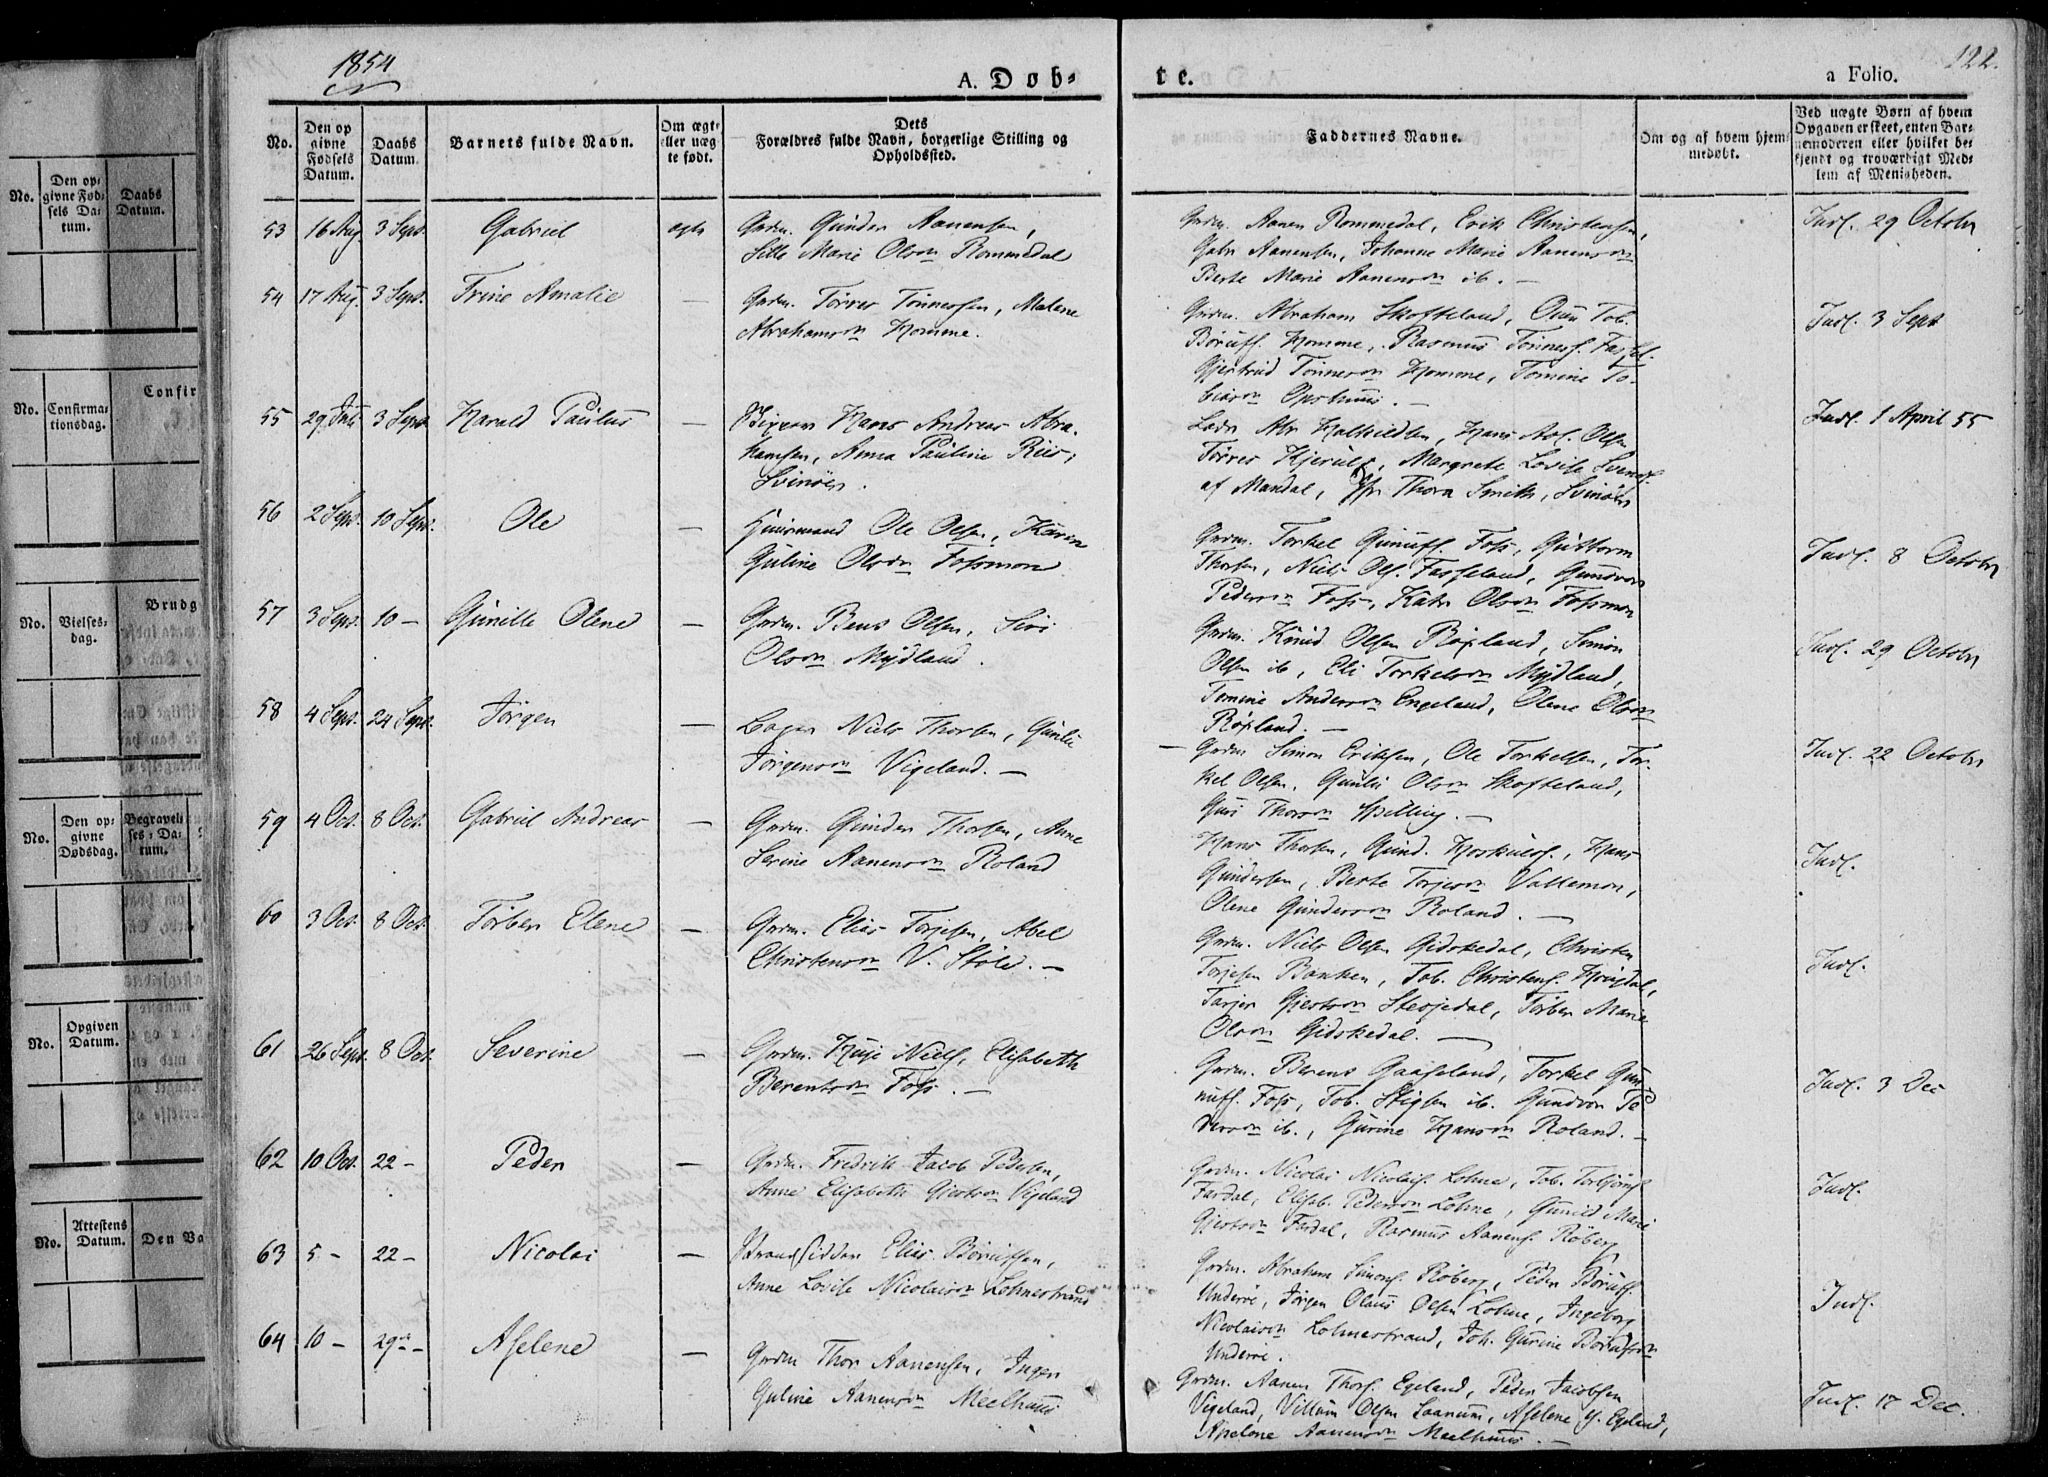 1854
A. Døb-
te.
a Folio.
122.
No.
Den op
givne
Fødsels
Datum.
Daabs
Datum.
Barnets fulde Navn.
Om ægt-
eller uæg
te født.
Dets
Forældres fulde Navn, borgerlige Stilling og
Opholdssted.
Faddernes Navne.
Om og af hvem hjem
medøbt.
Ved uægte Børn af hvem
Opgaven er skeet, enten Bar-
nemoderen eller hvilket be-
kjendt og troværdigt Med-
lem af Menigheden.
53 16 Aug. 3 Sept. Gabriel ægte
Grdm. Gunder Aanensen,
Sille Marie Olsdn Rommedal
Grdm. Aanen Rommedal, Erik Christensen,
Gabr Aanensen, Johanne Marie Aanensdn
Berte Marie Aanensdn ib. —
Indl. 29 Octobr
54 17 Aug. 3 Sept. Trine Amalie —
Grdm. Tørres Tønnessen, Malene
Abrahamsdn Homme.
Grdm. Abraham Skofteland, Tob.
Børufs. Homme, Rasmus Tønnes.
Gjertrud Tønnesdn Homme, Tomine To-
biasdn Opshuus. —
Indl. 3 Sept
55 29 Juli 3 Sept. Harald Paulus —
Hans Andreas Abra-
hamsen, Anna Pauline Riis,
Svinøer.
Lods Abr Halkildsen, Hans Ol. Olsen
Tørres Kjerulf, Margrete Lovise Svends.
af Mandal, Thora Smith, Svinøer
Indl. 1 April 55
56 2 Sept. 10 Sept. Ole —
Huusmand Ole Olsen, Karen
Guline Olsdn Fossmoe
Grdm. Torkel Gunufs. Foss, Guttorm
Thorsen, Niels Ols. Fasseland, Gundvor
Pedersdn Foss, Katr Olsdn Fossmoe
Indl. 8 Octobr
57 3 Sept. 10 — Gunille Olene —
Grdm. Bent Olsen, Siri
Olsdn Mydland.
Grdm. Knud Olsen Røpland, Simon
Olsen ib, Eli Torkelsdn Mydland,
Tomine Andersdn Engeland, Olene Olsdn
Røpland. —
Indl. 29 Octobr
58 4 Sept. 24 Sept. Jørgen —
Niels Thorsen, Gunlie
Jørgensdn Vigeland. —
— Grdm Simon Eriksen, Ole Torkelsen, Tor-
kel Olsen, Gunlie Olsdn Skofteland,
Guri Thorsdn Spilling. —
Indl. 22 Octobr
59 4 Oct. 8 Oct. Gabriel Andreas —
Grdm. Gunder Thorsen, Anne
Serine Aanensdn Roland
Hans Thorsen, Gund. Hoskulds., Hans
Gundersen, Berte Torjesdn Vallemoe,
Olene Gundersdn Roland. —
Indl.
60 3 Oct. 8 Oct. Torber Elene —
Grdm. Elias Torjesen, Abel
Christensdn V. Støle. —
Grdm. Niels Olsen Gidskedal, Christen
Torjesen Banken, Tob. Christens.
Tarjer Gjertsdn Stusjedal, Torber Marie
Olsdn Gidskedal. —
Indl.
61 26 Sept. 8 Oct. Severine —
Grdm. Niels, Elisabeth
Berentsdn Foss. —
Grdm. Berent Gaaseland, Torkel Gun-
nufs. Foss, Tob. Stigsen ib. Gundvor Pe-
dersdn ib., Gurine Hansdn Roland. —
Indl. 3 Dec
62 10 Oct. 22 — Peder —
Grdm. Fredrik Jacob Pedersen,
Anne Elisabeth Gjertsdn Vigeland
Grdm. Nicolai Nicolais. Lohne, Tob. Torbjørns.
Fardal, Elisab. Pedersdn Lohne, Gunild Marie
Gjertsdn Fardal, Rasmus Aanens. Røberg
Indl.
63 5 — 22 — Nicolai —
Strandsidder Elias Børufsen,
Anne Lovise Nicolaisdn Lohnestrand
Grdm. Abraham Simons. Røberg, Peder Børufs.
Underøe, Jørgen Olaus Olsen Lohne, Ingeborg
Nicolaisdn Lohnestrand, Joh. Gurine Børufsdn
Underøe.
Indl.
64 10 — 29 — Aselene —
Grdm Thor Aanensen, Inger
Guline Aanensdn Meelhuus
Grdm. Aanen Thors. Egeland, Peder Jacobsen
Vigeland, Villum Olsen Laanum, Aselene Y. Egeland,
Aselene Aanensdn Meelhuus. —
Indl. 17 Dec.
No.
Den op-
givne Fød-
sels Da-
tum.
Daabs
Datum.
No.
Confirma-
tionsdag.
Confir
No.
Vielses-
dag.
Brudg
No.
Den op-
givne
Dødsdag.
Begravel-
ses-Da-
tum.
No.
Opgiven
Datum.
No.
Attestens
Datum.
Den Va